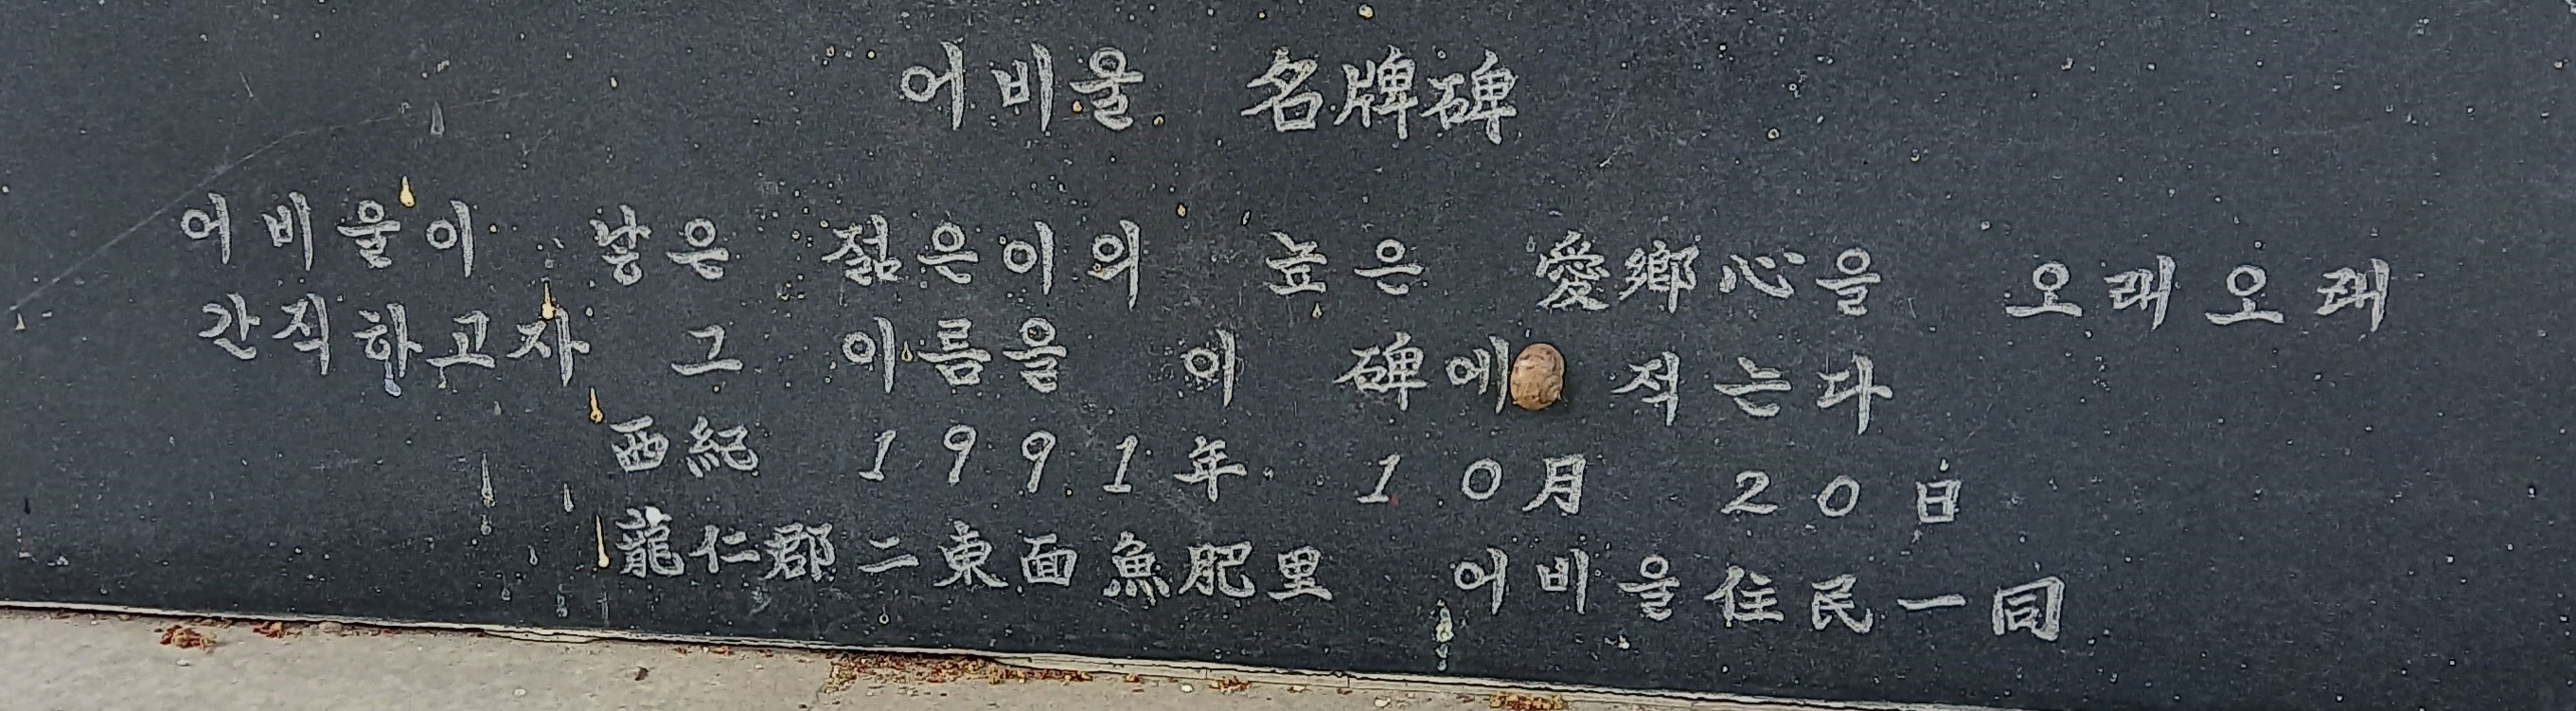 어비울 名牌碑
어비울이 낳은 젊은이의 높은 愛鄕心을 오래오래
간직하고자 그 이름을 이 碑에 적는다
西紀 1991年 10月 20日
龍仁郡 二東面 魚肥里 어비울住民一同